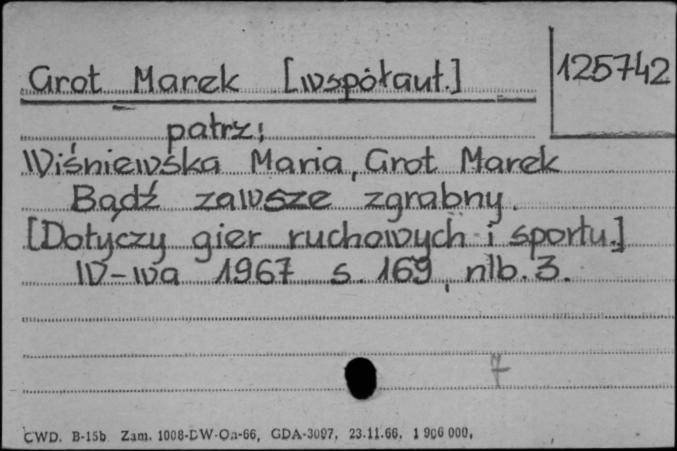 Grot Marek [współaut.]
125742
patrz:
Wiśniewska Maria, Grot Marek
Bądź zawsze zgrabny.
[Dotyczy gier ruchowych i sportu.]
W-wa 1967 s. 169, nlb. 3.
7
CWD. B-15b. Zam. 1008-DW-On-66, GDA-3097, 23.11.66. 1 906 000.